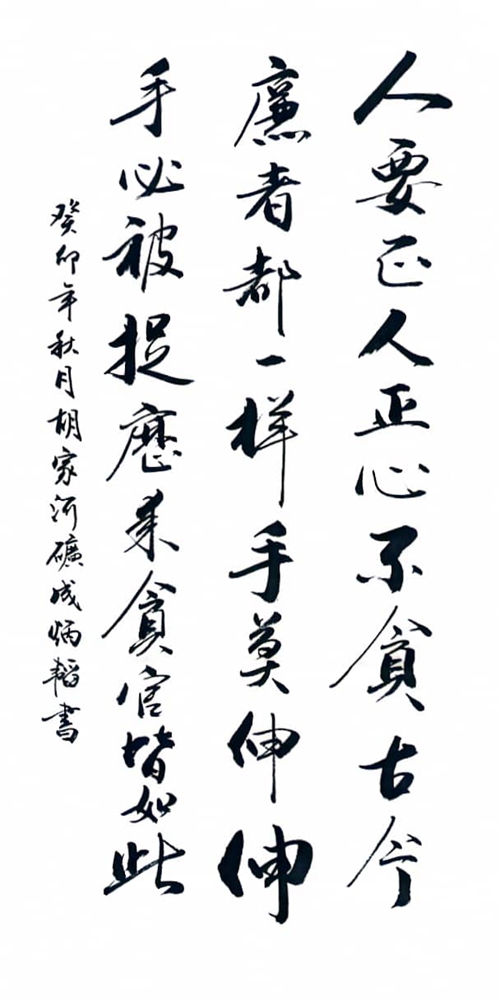 人要正人正心不貪古今
廉者都一样手莫伸伸
手必被捉歷来貪官皆如此
癸卯年秋月胡家河礦成炳韜書